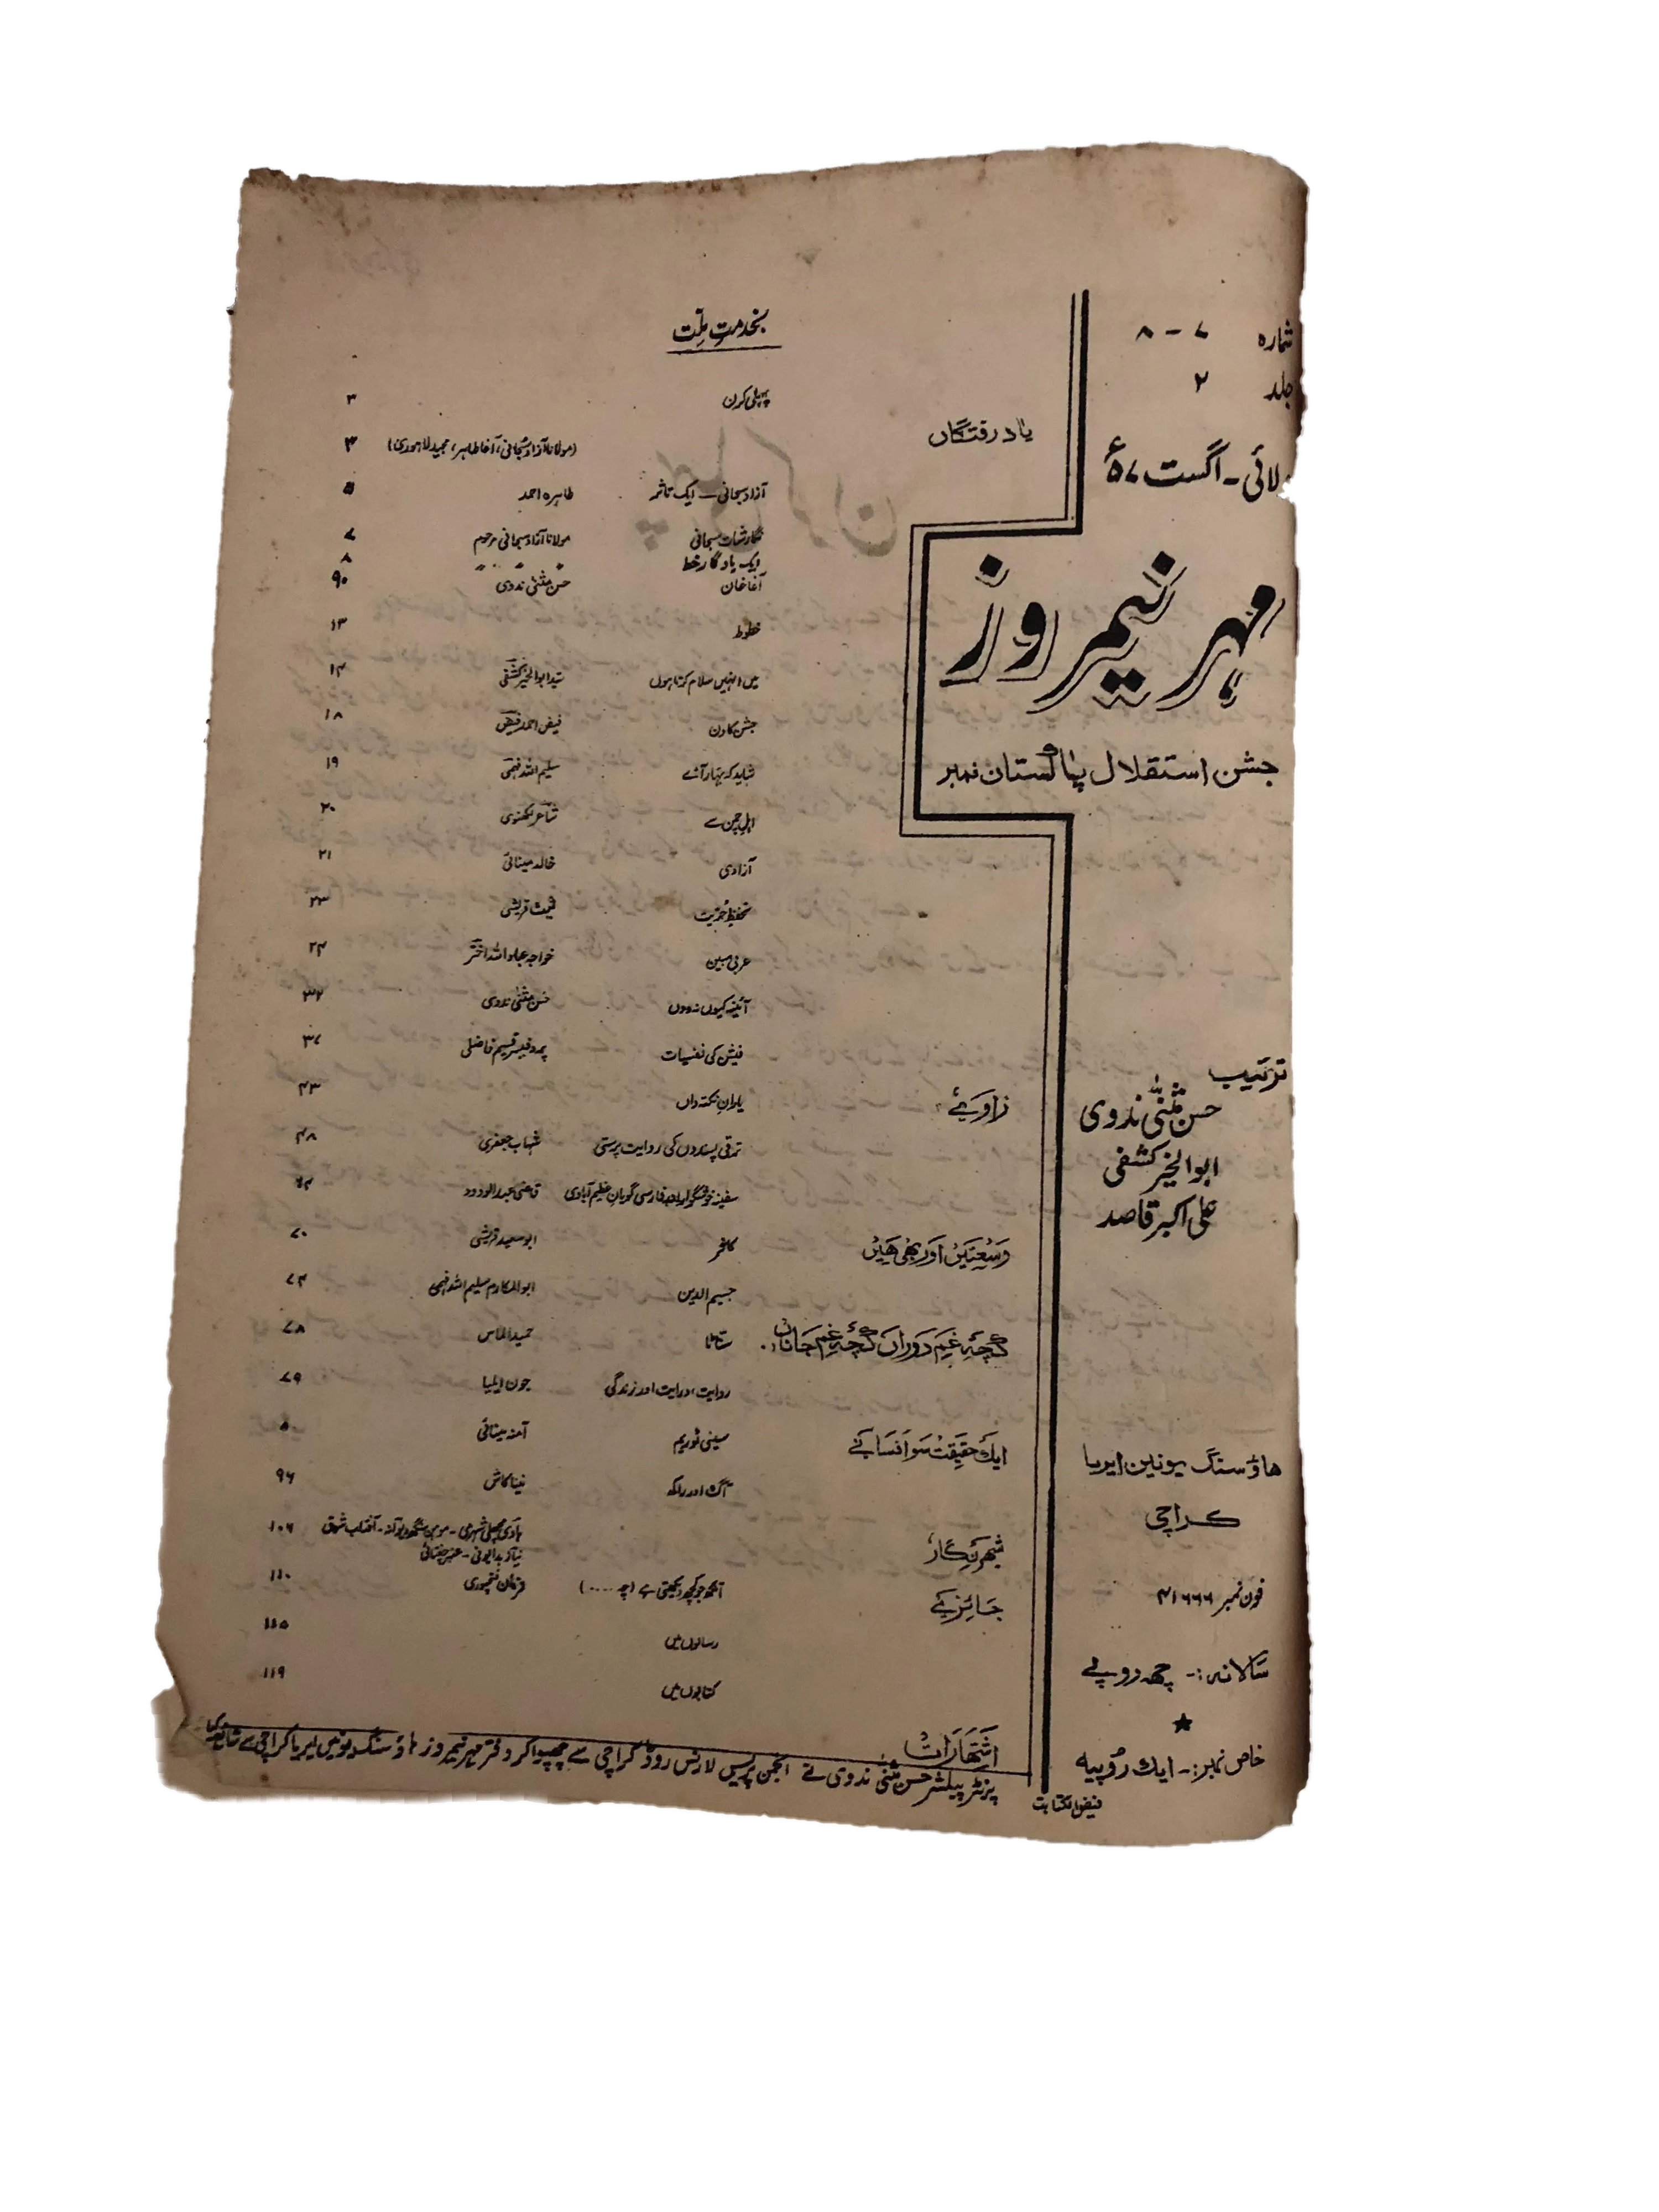 شمارہ ۷ - ۸
جلد ۲
لائی - اگست ۵۷ء
مہر نیمروز
جشن استقلال پاکستان نمبر
ترتیب
حسن مثنیٰ ندوی
ابوالخیر کشفی
علی اکبر قاصد
ھاؤسنگ یونین ایریا
کراچی
فون نمبر ۴۱۶۶۶
سالانہ:- چھ روپے
خاص نمبر:- ایک روپیہ
فیض الکتابت
بخدمت ملّت
پہلی کرن ۳
یاد رفتگاں (مولانا آزاد سبحانی، آغا طاہر، مجید لاہوری) ۴
آزاد سبحانی — ایک تاثر طاہرہ احمد ۵
نگارشات سبحانی مولانا آزاد سبحانی مرحوم ۷
ایک یادگار خط " " " ۸
آغا خان حسن مثنیٰ ندوی ۹
خطوط ۱۳
میں انہیں سلام کرتا ہوں سید ابوالخیر کشفی ۱۴
جشن کا دن فیض احمد فیض ۱۸
شاید کہ بہار آئے سلیم اللہ فہمی ۱۹
اہل چمن سے شاعر لکھنوی ۲۰
آزادی خالد مینائی ۲۱
تحفظ حریت قریشی ۲۳
عربی مبین خواجہ عباد اللہ اختر ۲۴
آئینہ کیوں نہ دوں حسن مثنیٰ ندوی ۳۲
فیشن کی نفسیات پروفیسر قسیم فاضلی ۳۷
زاویئے یاران نکتہ داں ۴۳
ترقی پسندوں کی روایت پرستی شہاب جعفری ۴۸
سفینہ خوشگو اور بعد فارسی گویان عظیم آبادی قاضی عبدالودود ۶۴
وسعتیں اور بھی ھیں کافر ابو سعید قریشی ۷۰
جسیم الدین ابوالمکارم سلیم اللہ فہمی ۷۴
کچھ غم دوراں کچھ غم جاناں سناٹا حمید الماس ۷۸
روایت، درایت اور زندگی جون ایلیا ۷۹
ایک حقیقت سو افسانے سینی ٹوریم آمنہ مینائی
آگ اور راکھ نینا کاش ۹۶
شہر نگار ہادی مچھلی شہری - موہن سنگھ دیوانہ - آفتاب شرق ۱۰۶
نیاز بدایونی - عنبر چغتائی
جائزے آنکھ جو کچھ دیکھتی ہے (چہ ....) فرمان فتحپوری ۱۱۰
رسالوں میں ۱۱۵
کتابوں میں ۱۱۹
اشتہارات
پرنٹر پبلشر حسن مثنیٰ ندوی نے انجمن پریس لارنس روڈ کراچی سے چھپوا کر دفتر مہر نیمروز ہاؤسنگ یونین ایریا کراچی سے شائع کیا